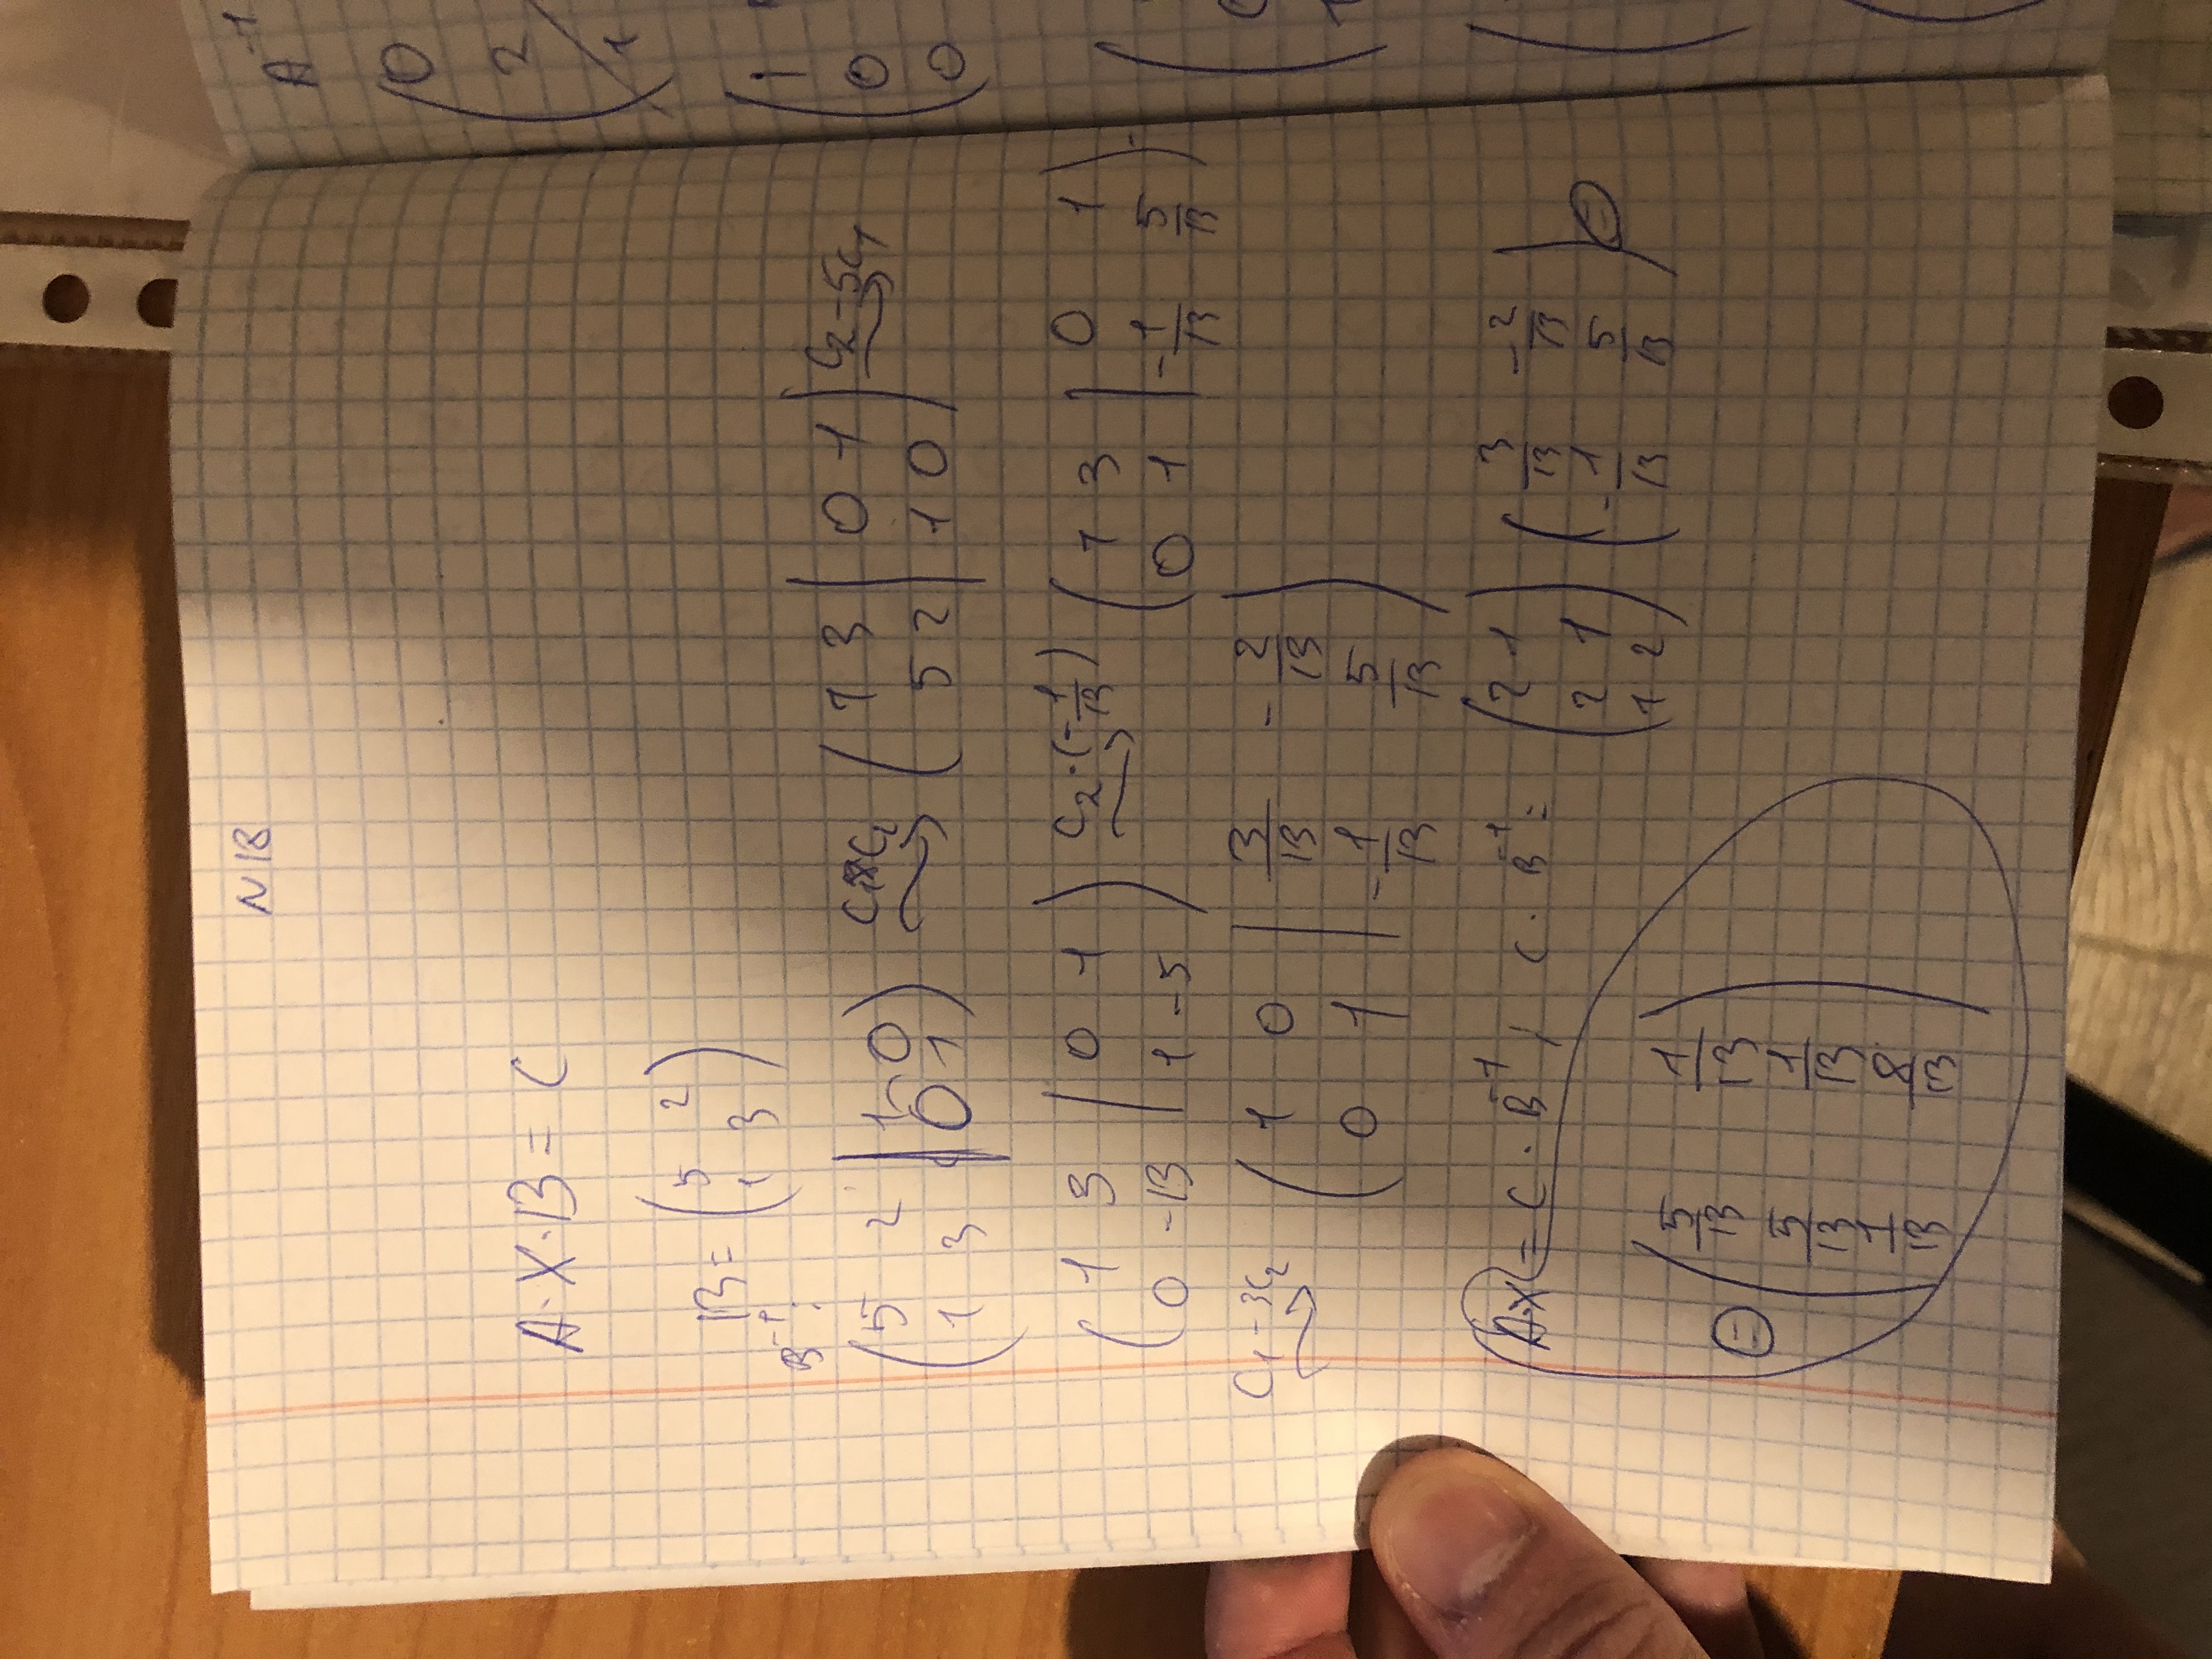 N 18
A·X·B = C
B = ( 5 2
1 3 )
B⁻¹:
( 5 2 | 1 0
1 3 | 0 1 ) C₁↔C₂ ( 1 3 | 0 1
5 2 | 1 0 ) C₂-5C₁
( 1 3 | 0 1
0 -13 | 1 -5 ) C₂·(-1/13) ( 1 3 | 0 1
0 1 | -1/13 5/13 )
C₁-3C₂ ( 1 0 | 3/13 -2/13
0 1 | -1/13 5/13 )
A·X = C·B⁻¹, C·B⁻¹ = ( 2 1
2 1
1 2 ) ( 3/13 -2/13
-1/13 5/13 ) =
= ( 5/13 1/13
5/13 1/13
1/13 8/13 )
A⁻¹
( 0
2
1
( 1
0
0